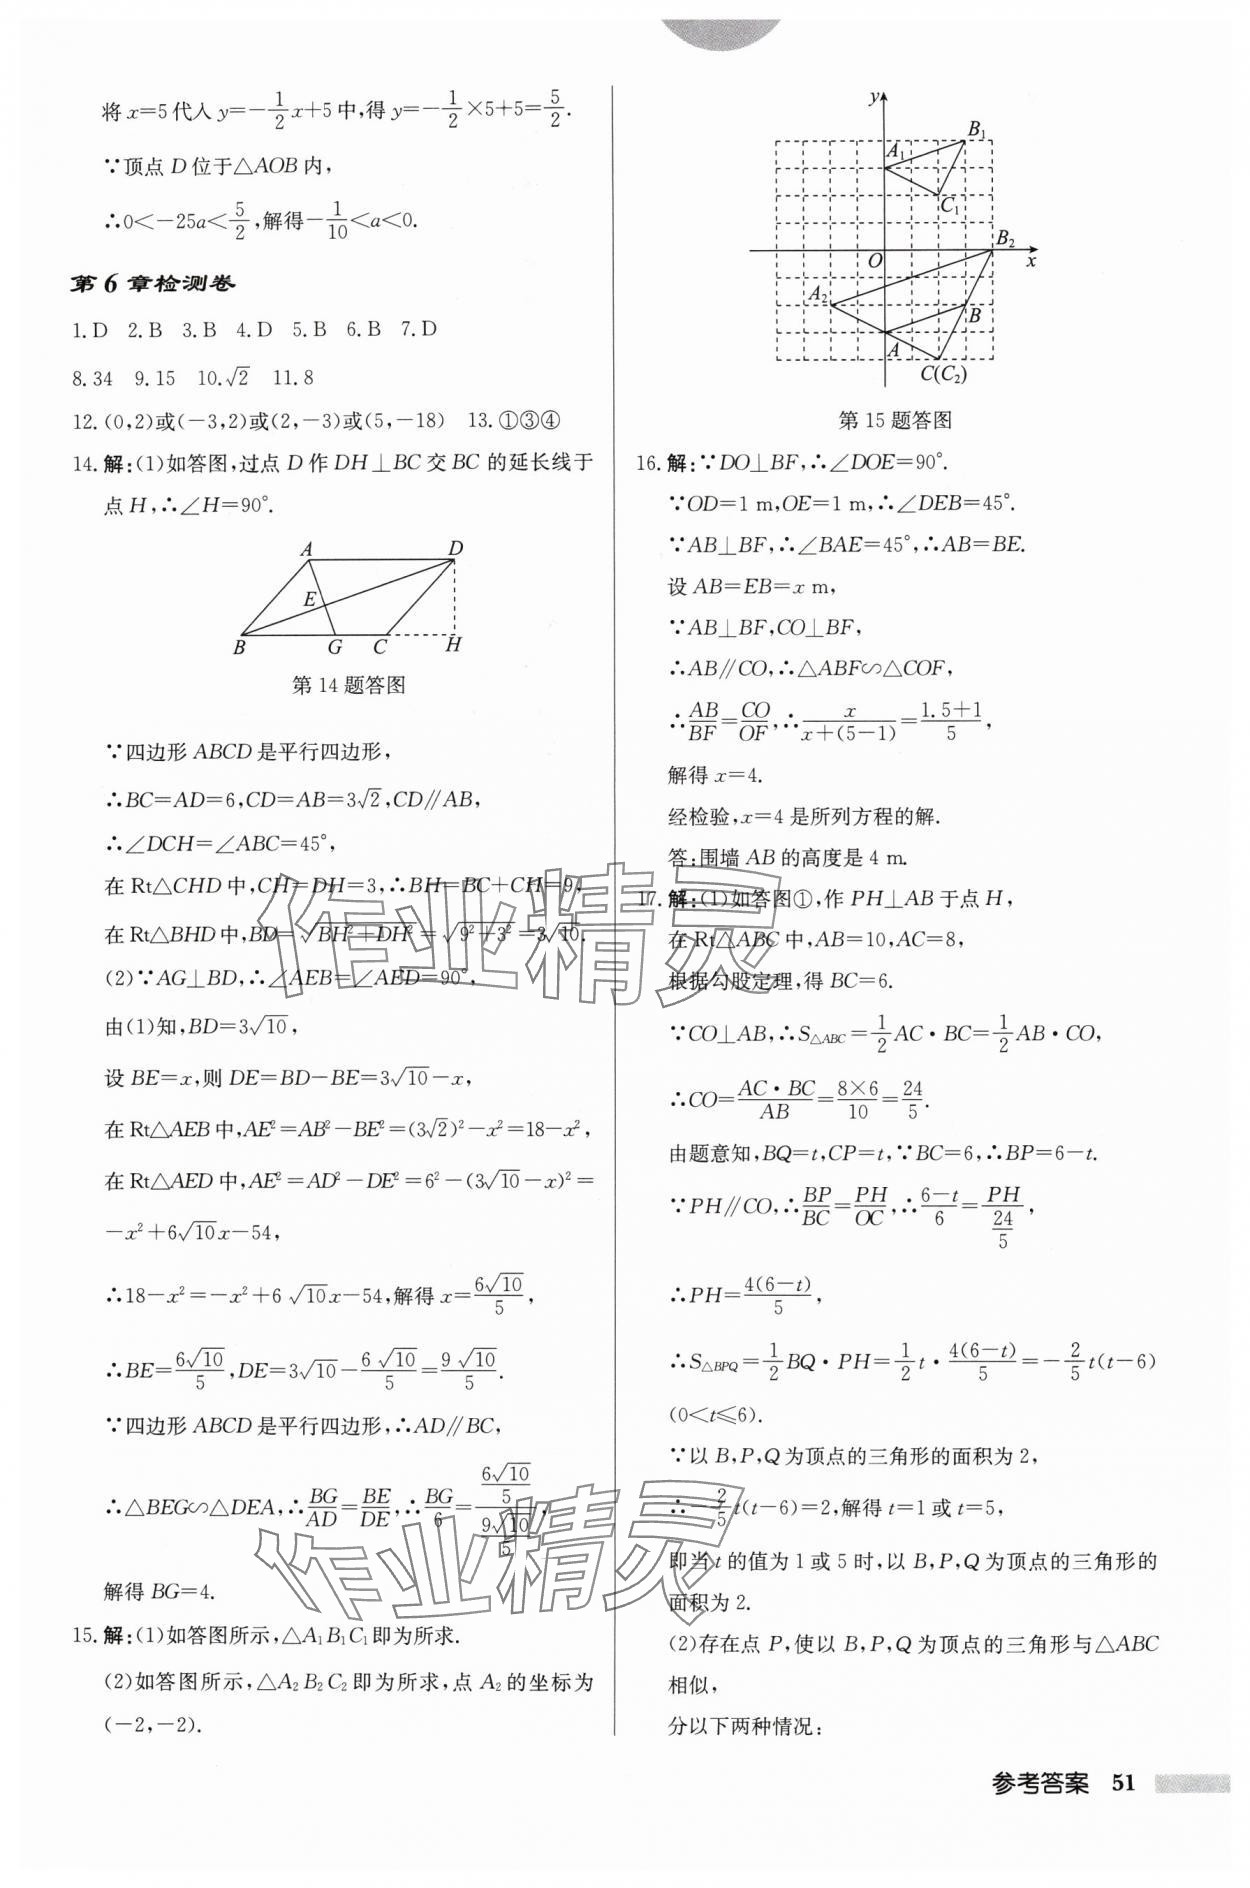 将x=5代入y=-1/2x+5中,得y=-1/2×5+5=5/2.
∵顶点D位于△AOB内,
∴0<-25a<5/2,解得-1/10<a<0.
第6章检测卷
1.D 2.B 3.B 4.D 5.B 6.B 7.D
8.34 9.15 10.√2 11.8
12.(0,2)或(-3,2)或(2,-3)或(5,-18) 13.①③④
14.解:(1)如答图,过点D作DH⊥BC交BC的延长线于
点H,∴∠H=90°.
A D
E
B G C H
第14题答图
∵四边形ABCD是平行四边形,
∴BC=AD=6,CD=AB=3√2,CD∥AB,
∴∠DCH=∠ABC=45°,
在Rt△CHD中,CH=DH=3,∴BH=BC+CH=9,
在Rt△BHD中,BD=√(BH²+DH²)=√(9²+3²)=3√10.
(2)∵AG⊥BD,∴∠AEB=∠AED=90°,
由(1)知,BD=3√10,
设BE=x,则DE=BD-BE=3√10-x,
在Rt△AEB中,AE²=AB²-BE²=(3√2)²-x²=18-x²,
在Rt△AED中,AE²=AD²-DE²=6²-(3√10-x)²=
-x²+6√10x-54,
∴18-x²=-x²+6√10x-54,解得x=6√10/5,
∴BE=6√10/5,DE=3√10-6√10/5=9√10/5.
∵四边形ABCD是平行四边形,∴AD∥BC,
∴△BEG∽△DEA,∴BG/AD=BE/DE,∴BG/6=(6√10/5)/(9√10/5),
解得BG=4.
15.解:(1)如答图所示,△A₁B₁C₁即为所求.
(2)如答图所示,△A₂B₂C₂即为所求,点A₂的坐标为
(-2,-2).
y
B₁
A₁
C₁
B₂
O x
A₂
B
A
C(C₂)
第15题答图
16.解:∵DO⊥BF,∴∠DOE=90°.
∵OD=1 m,OE=1 m,∴∠DEB=45°.
∵AB⊥BF,∴∠BAE=45°,∴AB=BE.
设AB=EB=x m,
∵AB⊥BF,CO⊥BF,
∴AB∥CO,∴△ABF∽△COF,
∴AB/BF=CO/OF,∴x/(x+(5-1))=(1.5+1)/5,
解得x=4.
经检验,x=4是所列方程的解.
答:围墙AB的高度是4 m.
17.解:(1)如答图①,作PH⊥AB于点H,
在Rt△ABC中,AB=10,AC=8,
根据勾股定理,得BC=6.
∵CO⊥AB,∴S△ABC=1/2AC·BC=1/2AB·CO,
∴CO=AC·BC/AB=8×6/10=24/5.
由题意知,BQ=t,CP=t,∵BC=6,∴BP=6-t.
∵PH∥CO,∴BP/BC=PH/OC,∴(6-t)/6=PH/(24/5),
∴PH=4(6-t)/5,
∴S△BPQ=1/2BQ·PH=1/2t·4(6-t)/5=-2/5t(t-6)
(0<t≤6).
∵以B,P,Q为顶点的三角形的面积为2,
∴-2/5t(t-6)=2,解得t=1或t=5,
即当t的值为1或5时,以B,P,Q为顶点的三角形的
面积为2.
(2)存在点P,使以B,P,Q为顶点的三角形与△ABC
相似,
分以下两种情况:
作业精灵
作业精灵
参考答案 51